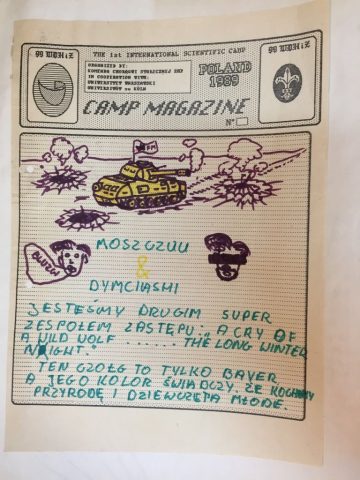 THE 1st INTERNATIONAL SCIENTIFIC CAMP
ORGANIZED BY:
KOMENDA CHORĄGWI STOŁECZNEJ ZHP
IN COOPERATION WITH:
UNIWERSYTET WARSZAWSKI
UNIVERSITAT zu KOLN
POLAND
1989
CAMP MAGAZINE
N°
MOSZCZUU
&
DYMCIASHI
JESTEŚMY DRUGIM SUPER
ZESPOŁEM ZASTĘPU: „A CRY OF
A WILD WOLF ...... THE LONG WINTER
NIGHT."
TEN CZOŁG TO TYLKO BAYER
A JEGO KOLOR ŚWIADCZY, ŻE KOCHAMY
PRZYRODĘ I DZIEWCZĘTA MŁODE.